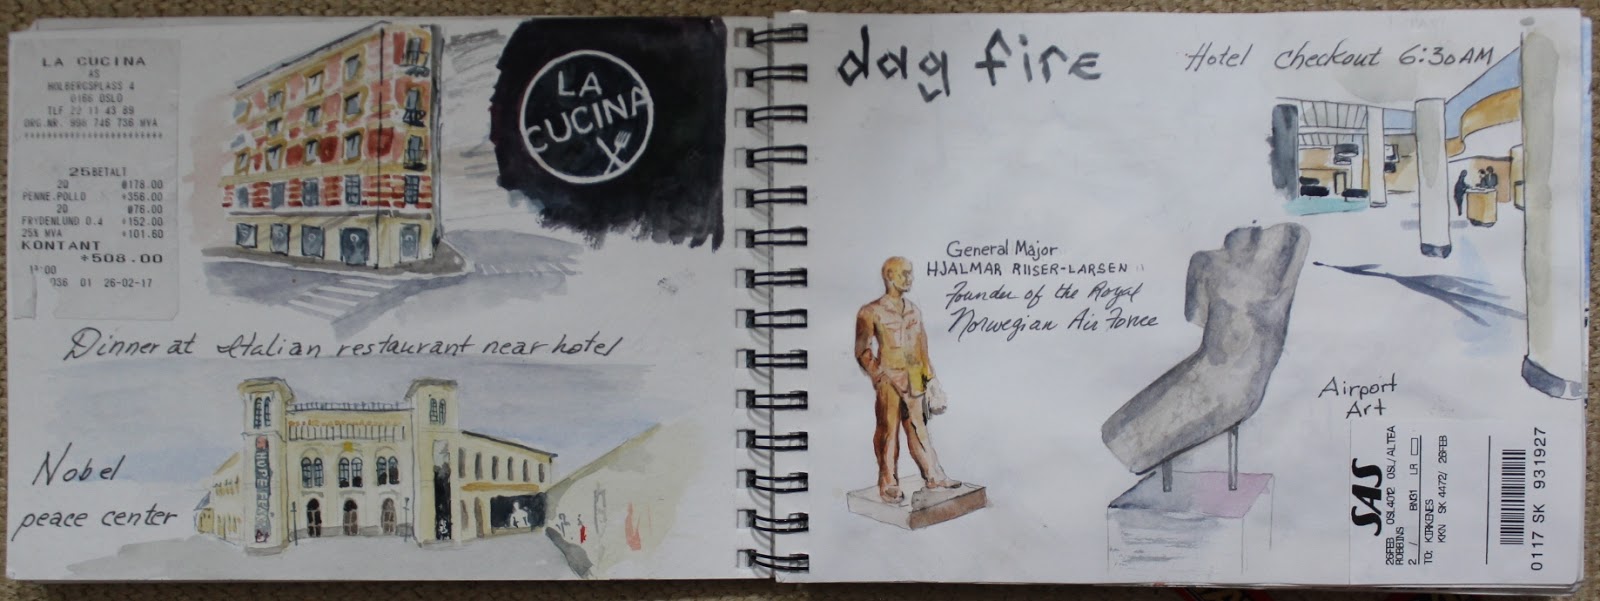 LA CUCINA
AS
HOLBERGSPLASS 4
0166 OSLO
TLF 22 11 43 89
ORG.NR. 998 746 736 MVA
********************
25BETALT
2@ @178.00
PENNE.POLLO *356.00
2@ @76.00
FRYDENLUND 0.4 *152.00
25% MVA *101.60
KONTANT
*508.00
036 01 26-02-17
LA
CUCINA
Dinner at Italian restaurant near hotel
Nobel
peace center
dag fire
Hotel checkout 6:30AM
General Major
HJALMAR RIISER-LARSEN
Founder of the Royal
Norwegian Air Force
Airport
Art
SAS
26FEB OSL4012 OSL/ALTEA
ROBBINS
2 / BNG1 LR
TO: KIRKENES
KKN SK 4472/ 26FEB
0117 SK 931927